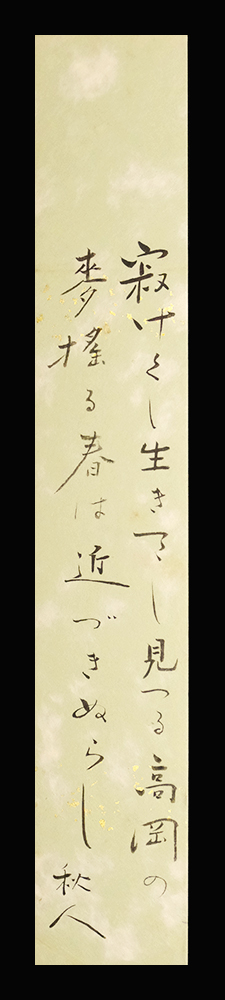 寂けくし生きてし見つる高岡の
麥搖る春は近づきぬらし
秋人